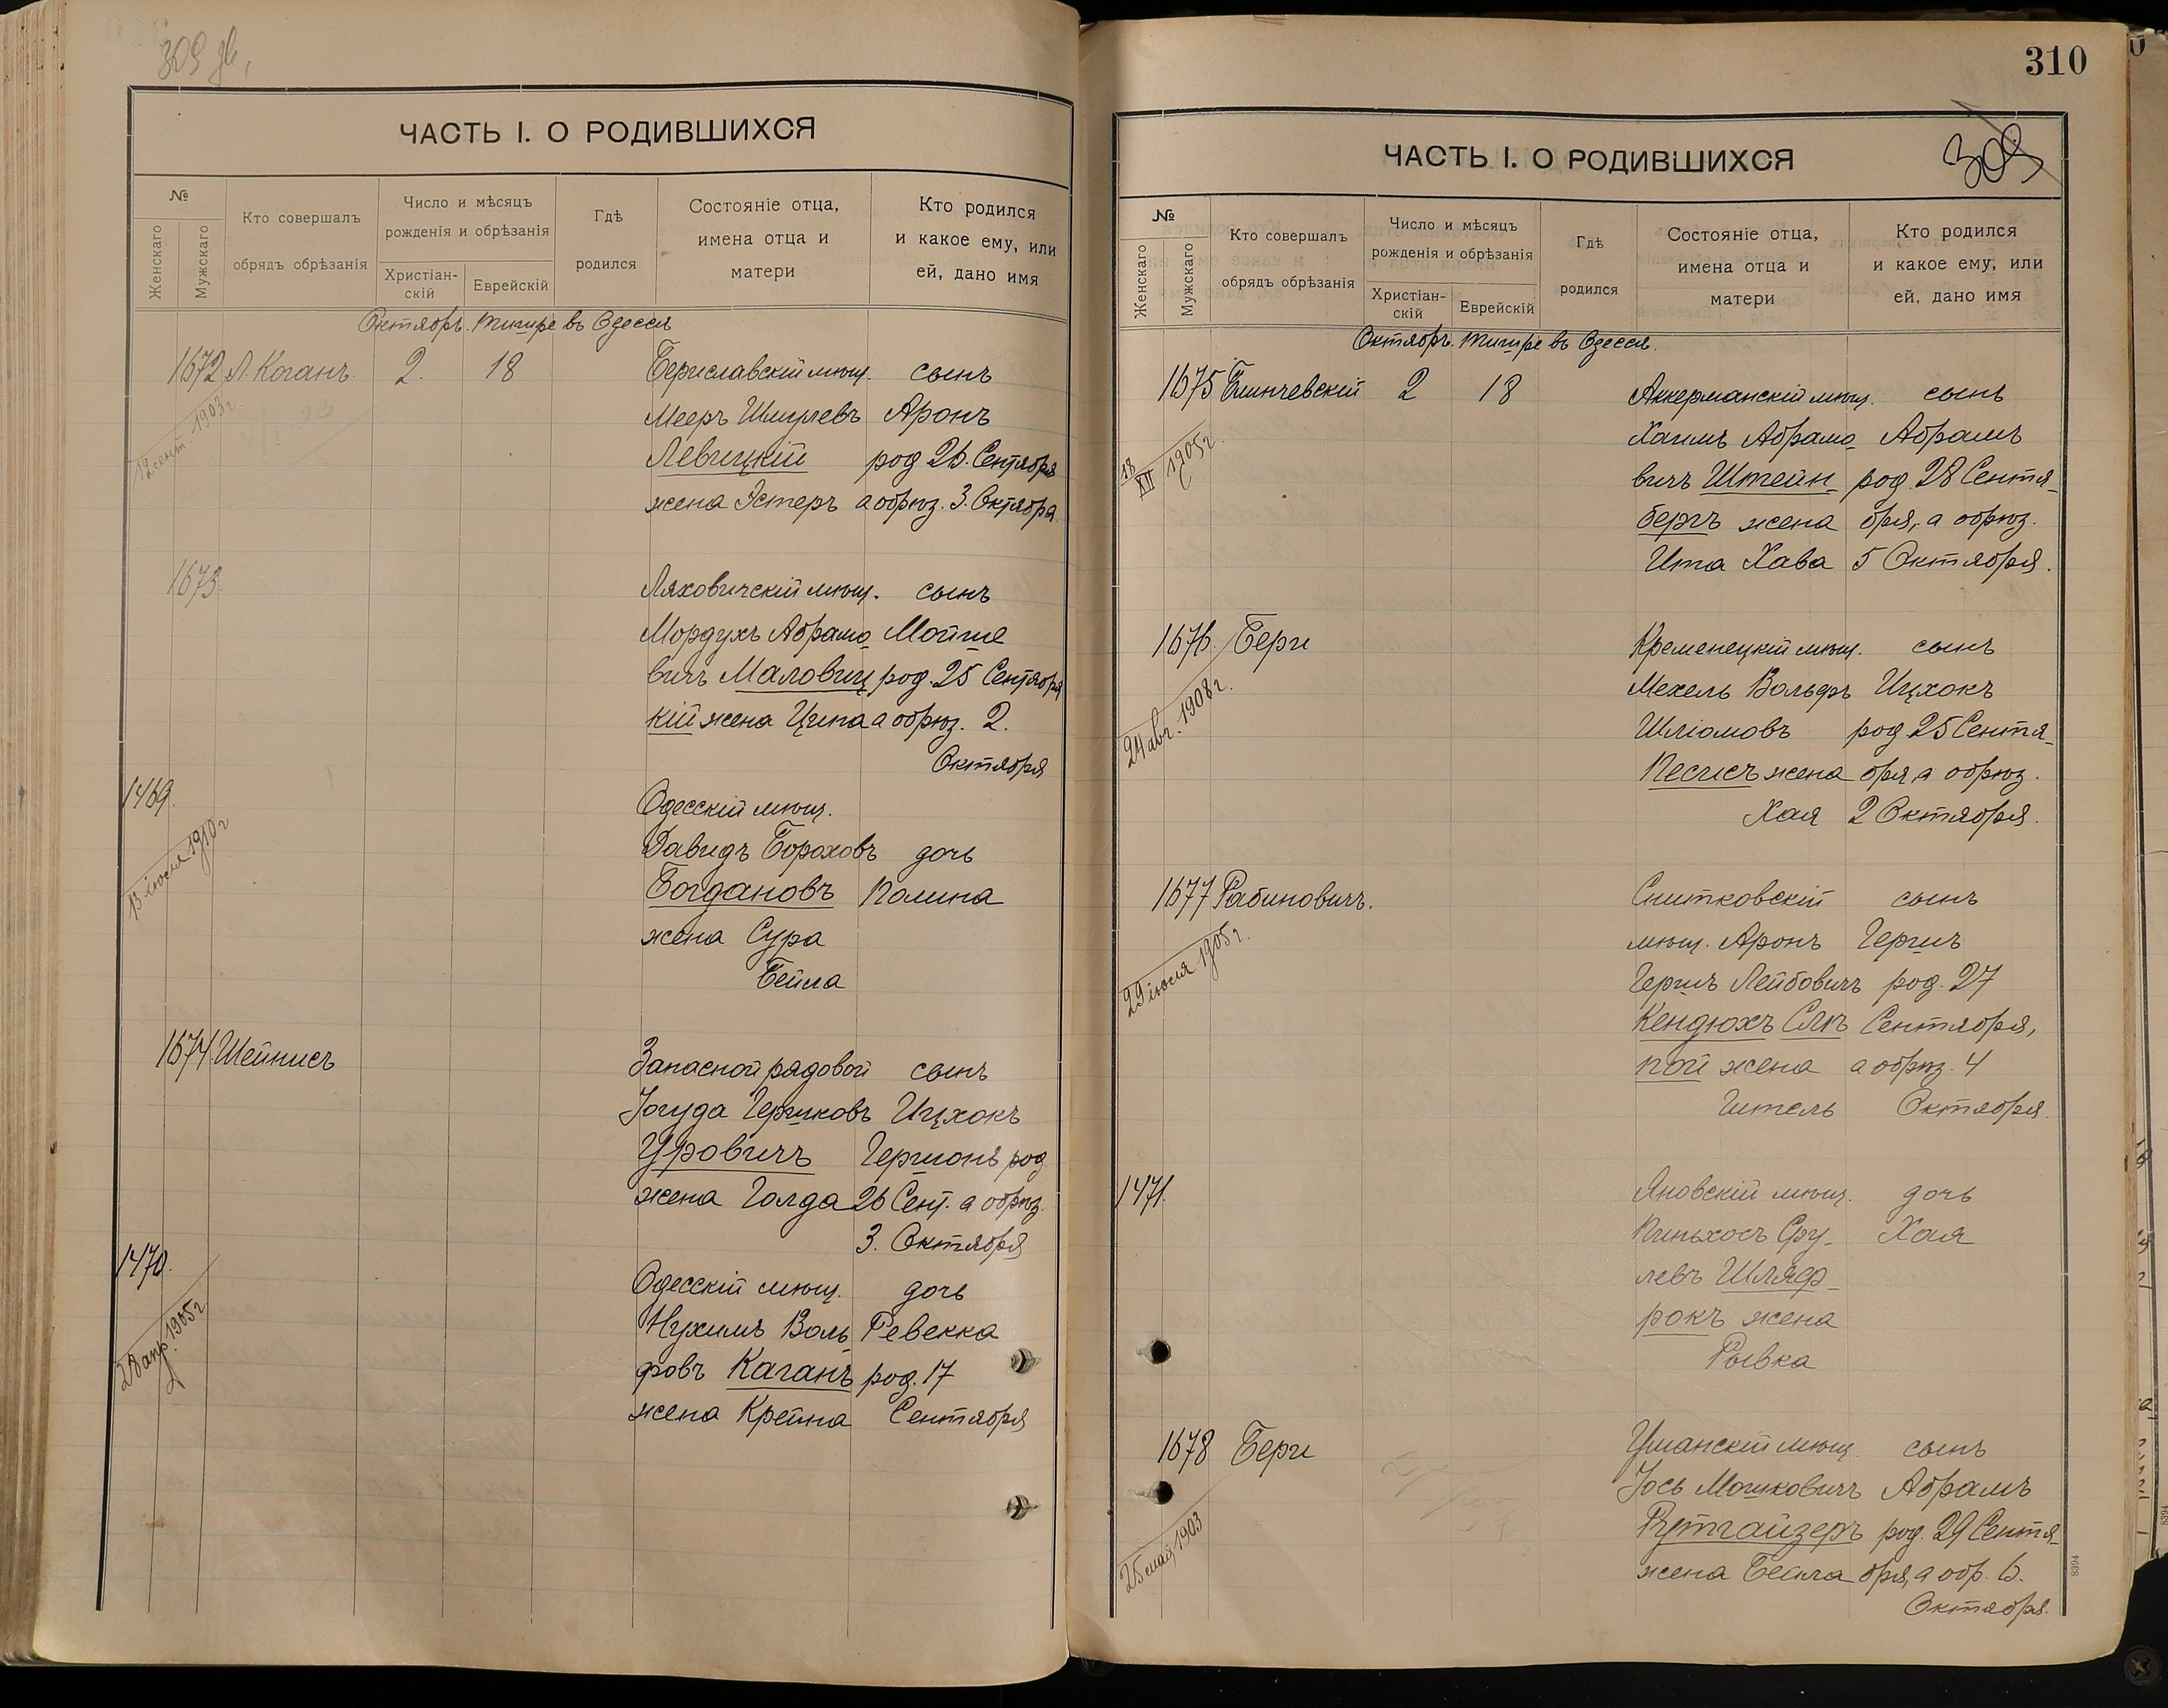 309 об.
ЧАСТЬ I. О РОДИВШИХСЯ
№
Женскаго
Мужскаго
Кто совершалъ
обрядъ обрѣзанія
Число и мѣсяцъ
рожденія и обрѣзанія
Христіан-
скій
Еврейскій
Гдѣ
родился
Состояніе отца,
имена отца и
матери
Кто родился
и какое ему, или
ей, дано имя
Октябрь. Тишре въ Одессѣ
1672 Л. Коганъ. 2. 18 Бериславскій мѣщ. сынъ
12 сент. 1903 г.
Мееръ Шмулевъ Аронъ
Левицкій род 26. Сентября
жена Эстеръ а обрѣз. 3. Октября
1673. Ляховичскій мѣщ. сынъ
Мордухъ Абрамо Мойше
вичъ Маловиц род. 25 Сентября
кій жена Ципа а обрѣз. 2.
Октября
1469. Одесскій мѣщ.
13 іюля 1910 г
Давидъ Бороховъ дочь
Богдановъ Полина
жена Сура
Бейла
1674. Шейнисъ Запасной рядовой сынъ
Іогуда Гершковъ Ицхокъ
Уровичъ Гершонъ род
жена Голда 26 Сент. а обрѣз.
3. Октября
1470. Одесскій мѣщ. дочь
28 апр. 1905 г
Нухимъ Воль Ревекка
фовъ Каганъ род. 17
жена Крейна Сентября
310
309
ЧАСТЬ I. О РОДИВШИХСЯ
№
Женскаго
Мужскаго
Кто совершалъ
обрядъ обрѣзанія
Число и мѣсяцъ
рожденія и обрѣзанія
Христіан-
скій
Еврейскій
Гдѣ
родился
Состояніе отца,
имена отца и
матери
Кто родился
и какое ему, или
ей, дано имя
Октябрь. Тишре въ Одессѣ.
1675 Блинчевскій 2 18 Аккерманскій мѣщ. сынъ
18/XII 1905 г.
Хаимъ Абрамо Абрамъ
вичъ Штейн- род. 28 Сентя-
бергъ жена бря, а обрѣз.
Ита Хава 5 Октября.
1676. Берги Кременецкій мѣщ. сынъ
24 авг. 1908 г.
Мехель Вольфъ Ицхокъ
Шліомовъ род 25 Сентя-
Песисъ жена бря, а обрѣз.
Хая 2 Октября.
1677 Рабиновичъ. Снитковскій сынъ
29 іюля 1905 г.
мѣщ. Аронъ Гершъ
Гершъ Лейбовичъ род. 27
Кендюхъ Слѣ Сентября,
пой жена а обрѣз. 4
Гитель Октября.
1471. Яновскій мѣщ. дочь
Пиньхосъ Сру- Хая
левъ Шляф-
рокъ жена
Рывка
1678 Берги Уманскій мѣщ. сынъ
25 мая 1903
Іось Мошковичъ Абрамъ
Рутгайзеръ род. 29 Сентя-
жена Бейла бря, а обр. 6.
Октября.
8394